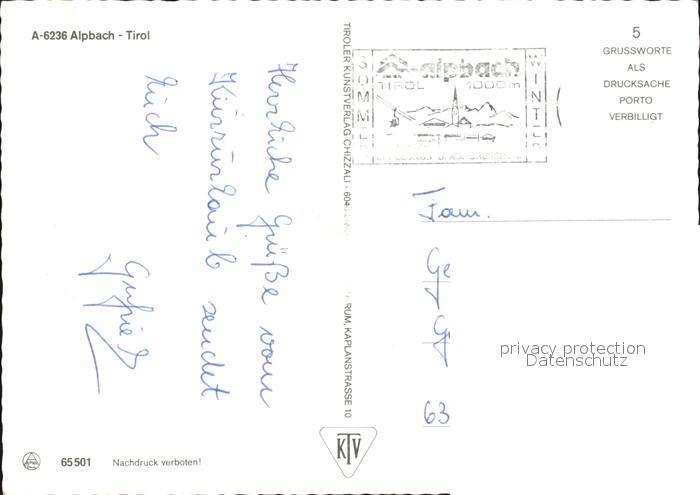 A-6236 Alpbach - Tirol
Herzliche Grüße vom
Kurzurlaub sendet
Euch
65501 Nachdruck verboten!
TIROLER KUNSTVERLAG CHIZZALI · 60
RUM, KAPLANSTRASSE 10
KTV
SOMMER
alpbach
TIROL 1000m
WINTER
5
GRUSSWORTE
ALS
DRUCKSACHE
PORTO
VERBILLIGT
Fam.
Ge
63
privacy protection
Datenschutz